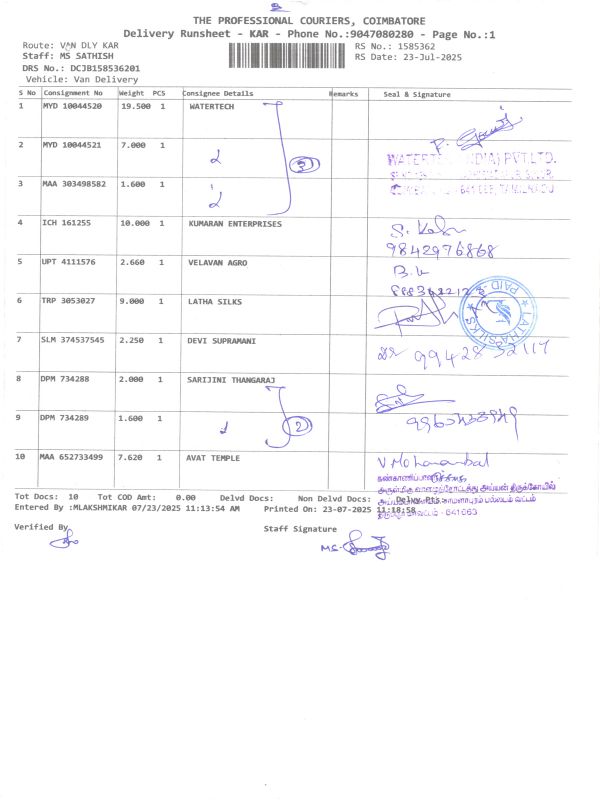 THE PROFESSIONAL COURIERS, COIMBATORE
Delivery Runsheet - KAR - Phone No.:9047080280 - Page No.:1
Route: VAN DLY KAR
RS No.: 1585362
Staff: MS SATHISH
RS Date: 23-Jul-2025
DRS No.: DCJB158536201
Vehicle: Van Delivery
S No Consignment No Weight PCS Consignee Details Remarks Seal & Signature
1 MYD 10044520 19.500 1 WATERTECH
2 MYD 10044521 7.000 1
3
3 MAA 303498582 1.600 1
4 ICH 161255 10.000 1 KUMARAN ENTERPRISES
9842976868
5 UPT 4111576 2.660 1 VELAVAN AGRO
6 TRP 3053027 9.000 1 LATHA SILKS
PAID
LATHA SILKS
7 SLM 374537545 2.250 1 DEVI SUPRAMANI
99428 32117
8 DPM 734288 2.000 1 SARIJINI THANGARAJ
9 DPM 734289 1.600 1
2
10 MAA 652733499 7.620 1 AVAT TEMPLE
V Mohanambal
Tot Docs: 10 Tot COD Amt: 0.00 Delvd Docs: Non Delvd Docs: Delvy Pts.
Entered By :MLAKSHMIKAR 07/23/2025 11:13:54 AM Printed On: 23-07-2025 11:18:58
Verified By
Staff Signature